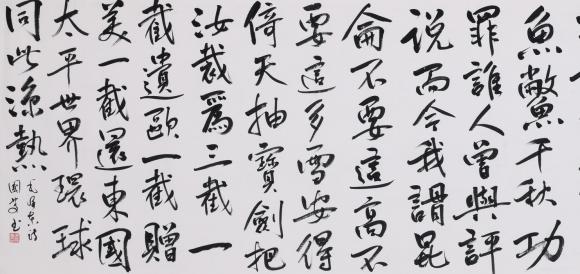 魚鱉千秋功
罪誰人曾與評
说而今我謂崑
侖不要這高不
要這多雪安得
倚天抽寶劍把
汝裁為三截一
截遺歐一截贈
美一截還東國
太平世界環球
同此涼熱
毛澤東詩